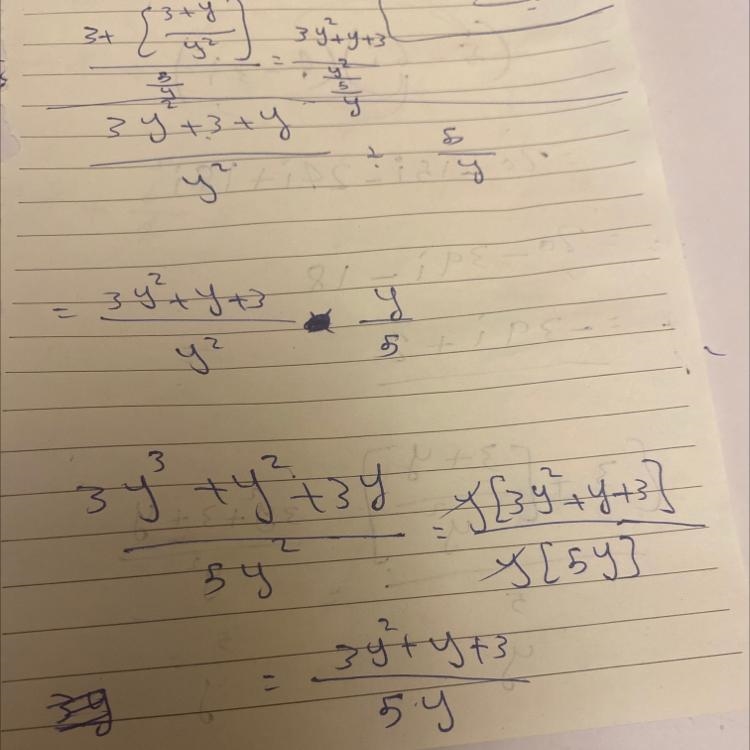 3+ [(3+y)/y²] / (5/y) = ((3y²+y+3)/y²) / (5/y)
(3y²+3+y)/y² ÷ 5/y
= (3y²+y+3)/y² • y/5
(3y³+y²+3y)/5y² = y[3y²+y+3]/y[5y]
= (3y²+y+3)/5y